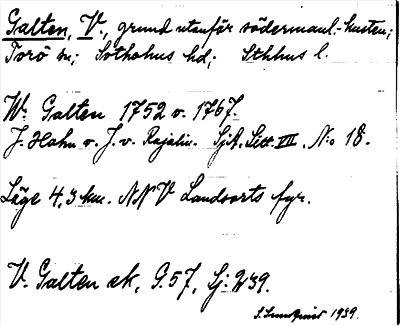 Galten, V., grund utanför södermanl.-kusten;
Torö sn; Sotholms hd; Sthlms l.
W. Galten 1752 o. 1767.
J. Hahn o. J. v. Rajalin. SjA. Litt. VII. No 18.
Läge 4,3 km. NNV Landsorts fyr.
V. Galten ek, G. 57, Sj: 239.
S. Sundqvist 1939.